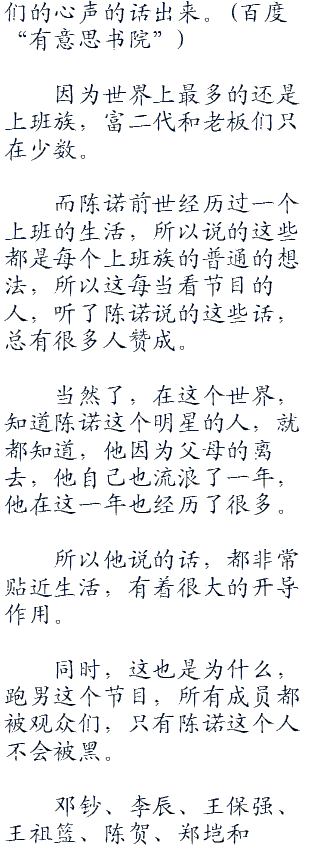 们的心声的话出来。(百度
“有意思书院”)
因为世界上最多的还是
上班族，富二代和老板们只
在少数。
而陈诺前世经历过一个
上班的生活，所以说的这些
都是每个上班族的普通的想
法，所以这每当看节目的
人，听了陈诺说的这些话，
总有很多人赞成。
当然了，在这个世界，
知道陈诺这个明星的人，就
都知道，他因为父母的离
去，他自己也流浪了一年，
他在这一年也经历了很多。
所以他说的话，都非常
贴近生活，有着很大的开导
作用。
同时，这也是为什么，
跑男这个节目，所有成员都
被观众们，只有陈诺这个人
不会被黑。
邓钞、李辰、王保强、
王祖篮、陈贺、郑垲和